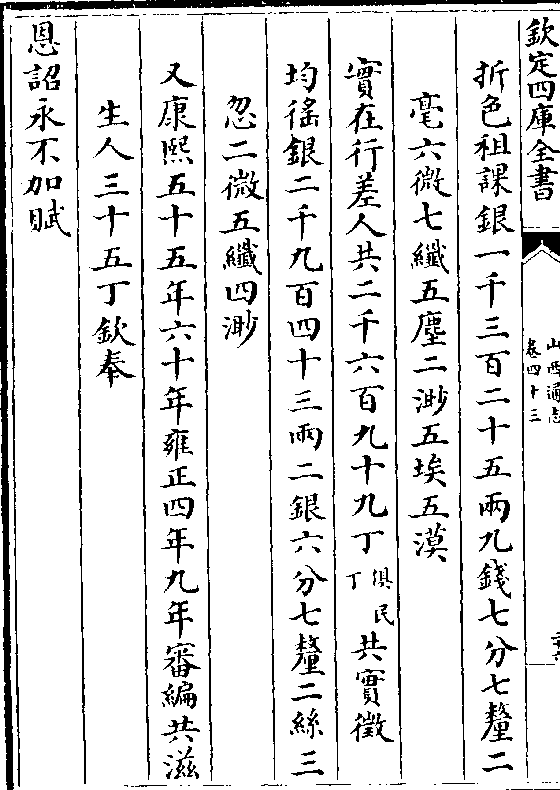 欽定四庫全書
山西通志
卷四十三
折色租課銀一千三百二十五兩九錢七分七釐二
毫六微七纖五塵二渺五埃五漠
實在行差人共二千六百九十九丁俱民丁共實徵
均徭銀二千九百四十三兩二銀六分七釐二絲三
忽二微五纖四渺
又康熙五十五年六十年雍正四年九年審編共滋
生人三十五丁欽奉
恩詔永不加賦